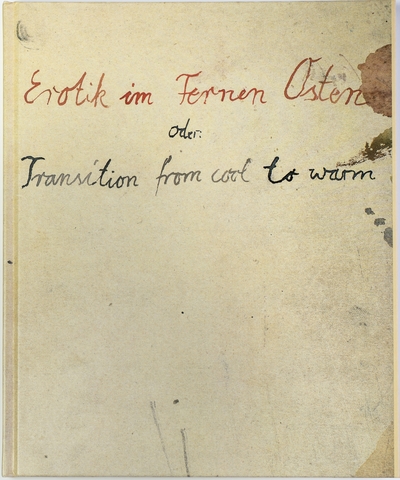 Erotik im Fernen Osten
oder:
Transition from cool to warm